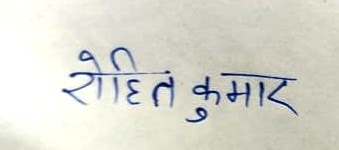 रोहित कुमार